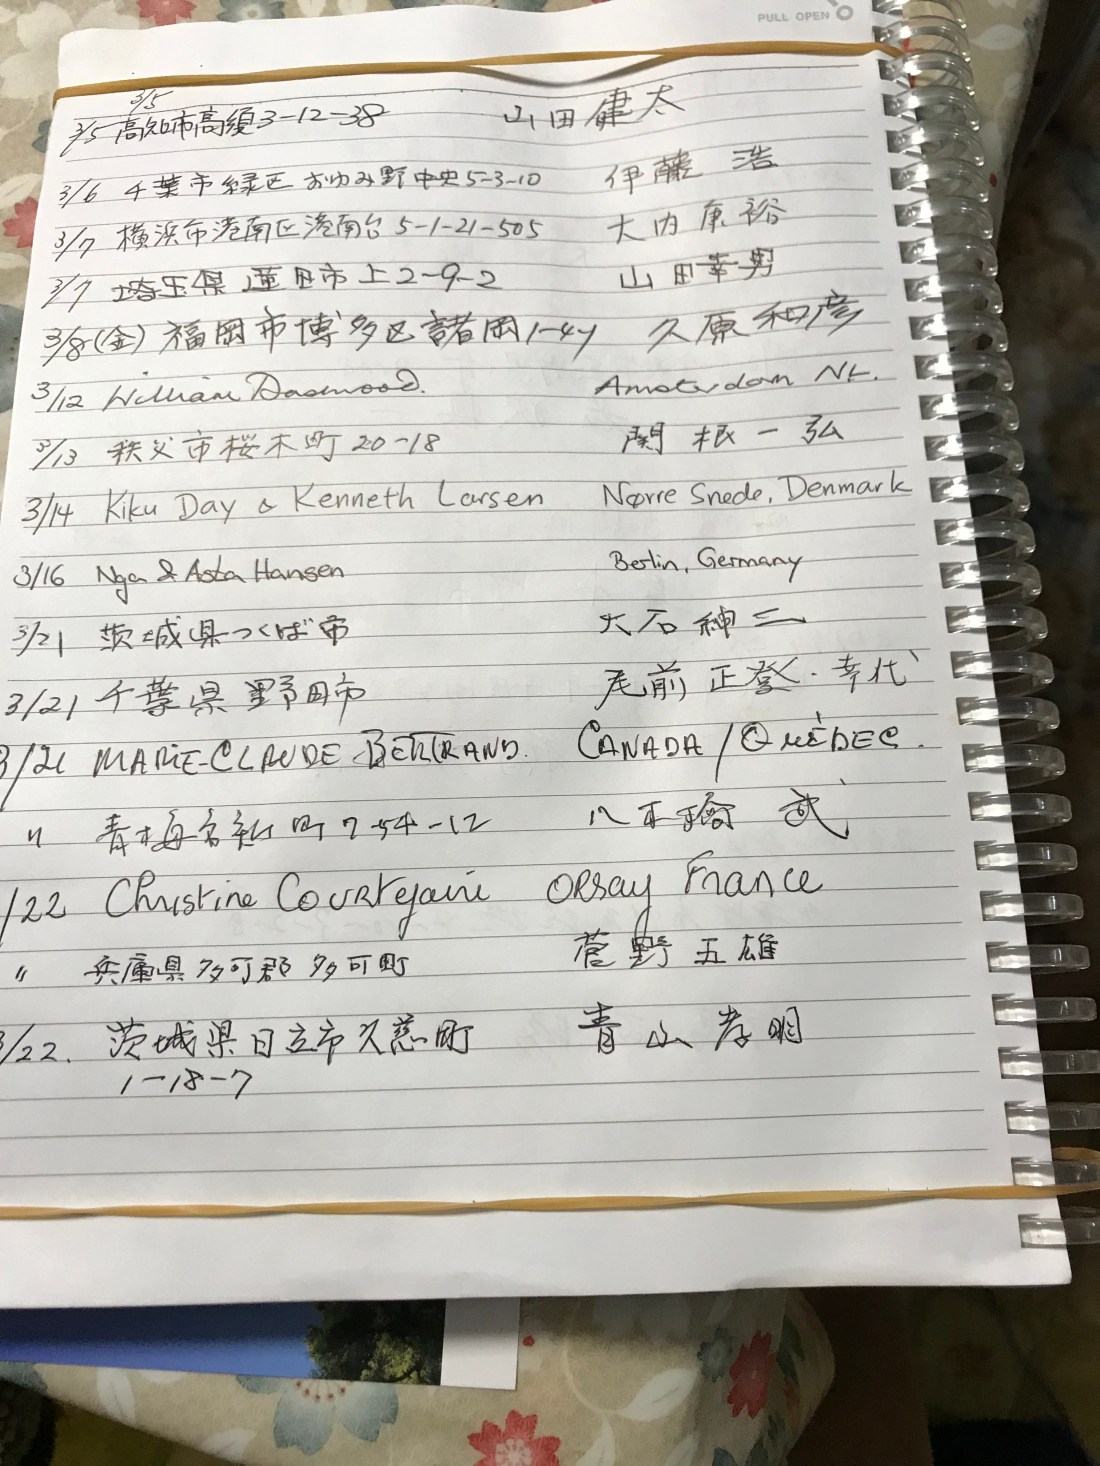 PULL OPEN
3/5
3/5 高知市高須3-12-38 山田健太
3/6 千葉市緑区おゆみ野中央5-3-10 伊藤 浩
3/7 横浜市港南区港南台5-1-21-505 大内康裕
3/7 埼玉県蓮田市上2-9-2 山田幸男
3/8(金) 福岡市博多区諸岡1-4 久原和彦
3/12 William Amsterdam NL.
3/13 秩父市桜木町20-18 関根一弘
3/14 Kiku Day & Kenneth Larsen Nørre Snede, Denmark
3/16 Nga & Asta Hansen Berlin, Germany
3/21 茨城県つくば市 大石紳三
3/21 千葉県野田市 尾前正登・幸代
3/21 MARIE-CLAUDE BERTRAND. CANADA / QUÉBEC.
〃 青梅市新町7-54-12 八木橋 武
/22 Christine Courtejaire ORSAY France
〃 兵庫県多可郡多可町 菅野五雄
3/22. 茨城県日立市久慈町 青山孝明
1-18-7